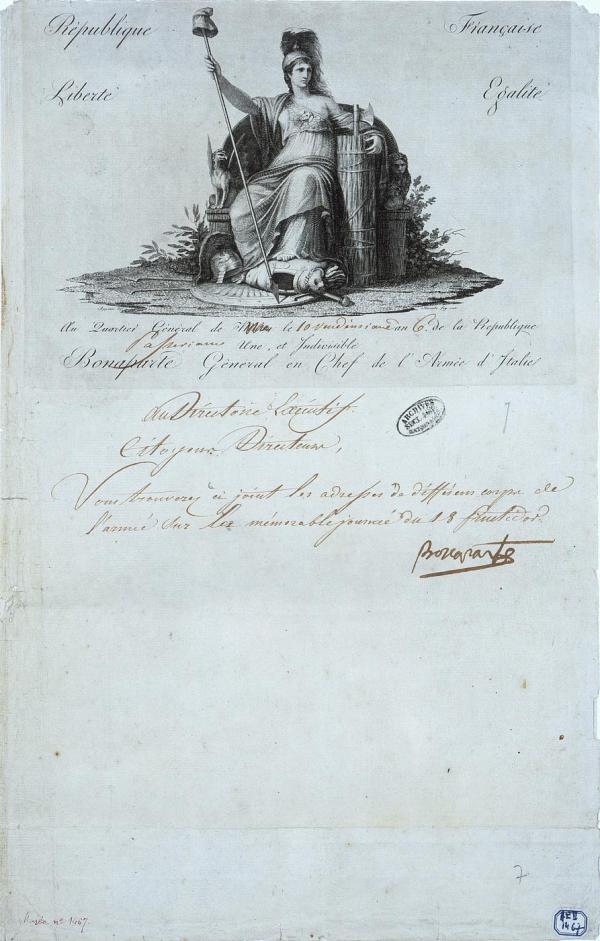 République Française
Liberté Egalité
Au Quartier Général de le 10 vendemiaire an 6. de la République
a passeriano Une, et Indivisible
Bonaparte Général en Chef de l'Armée d'Italie
Au Directoire Exécutif.
Citoyens Directeurs,
Vous trouverez ci joint les adresses de différens corps de
l'armée sur la mémorable journée du 18 fructidor.
Bonaparte
ARCHIVES
NATIONALES
7
Musée nº 1467.
AE II
1467